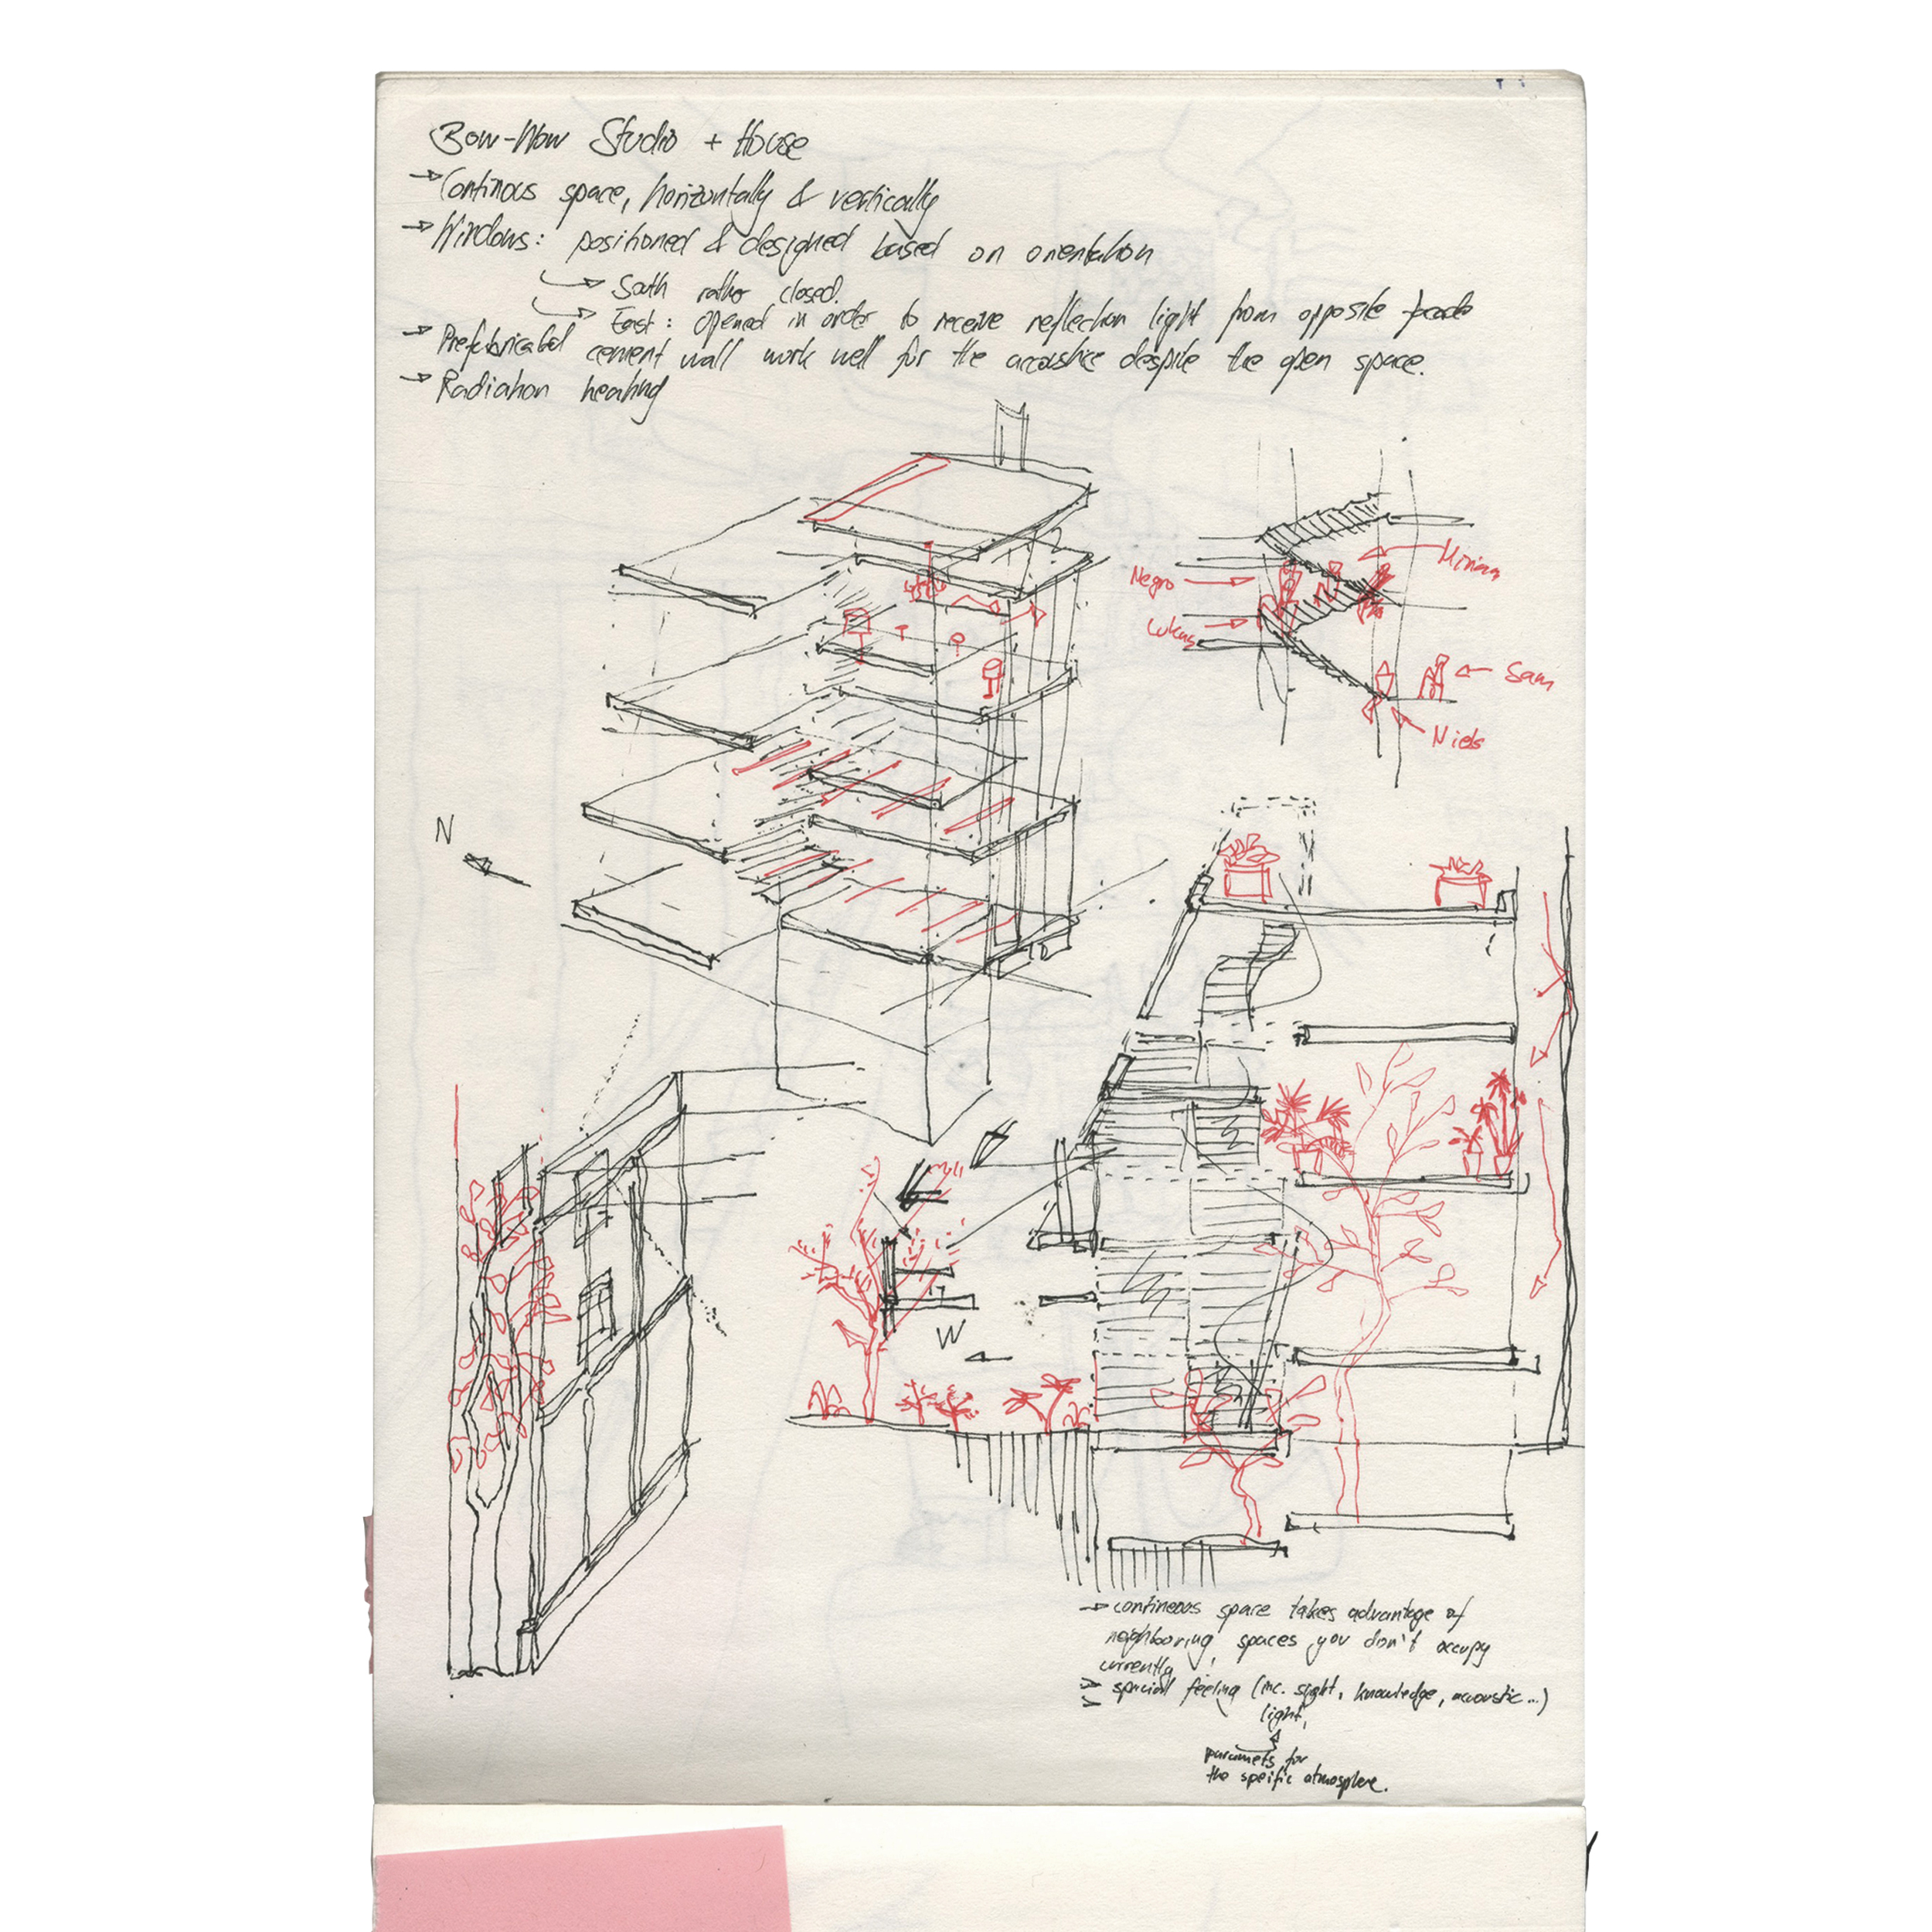 Bow-Wow Studio + House
→ Continous space, horizontally & vertically
→ Windows: positioned & designed based on orientation
→ South rather closed.
→ East: opened in order to receive reflection light from opposite facade
→ Prefabricated cement wall work well for the accoustics despite the open space.
→ Radiation heating
Miriam
Negro
Lukas
Sam
Niels
N
W
→ continuous space takes advantage of
neighboring spaces you don't occupy
currently
spacial feeling (inc. sight, knowledge, acoustic...)
light,
paramets for
the speific atmosphere.